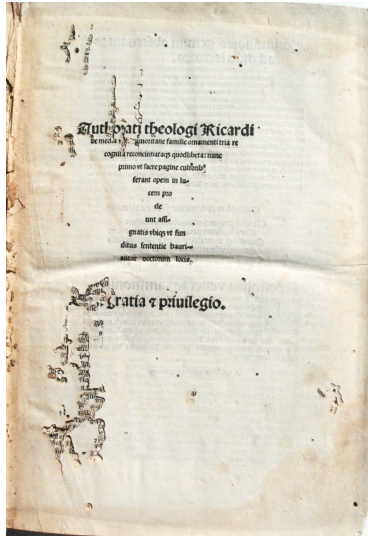 theologi Ricardi
de media minoritane familie ornamenti tria re
cognita reconcinnataqȝ quodlibeta: nunc
primo vt sacre pagine cultoribꝰ
ferant opem in lu-
cem pro
de
unt assi-
gnatis vbiqȝ vt fun
ditus sententie hauri-
antur doctorum locis.
gratia ⁊ priuilegio.